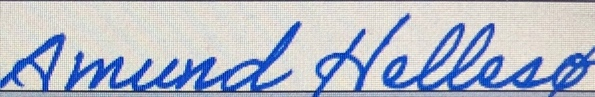 Amund Hellesø